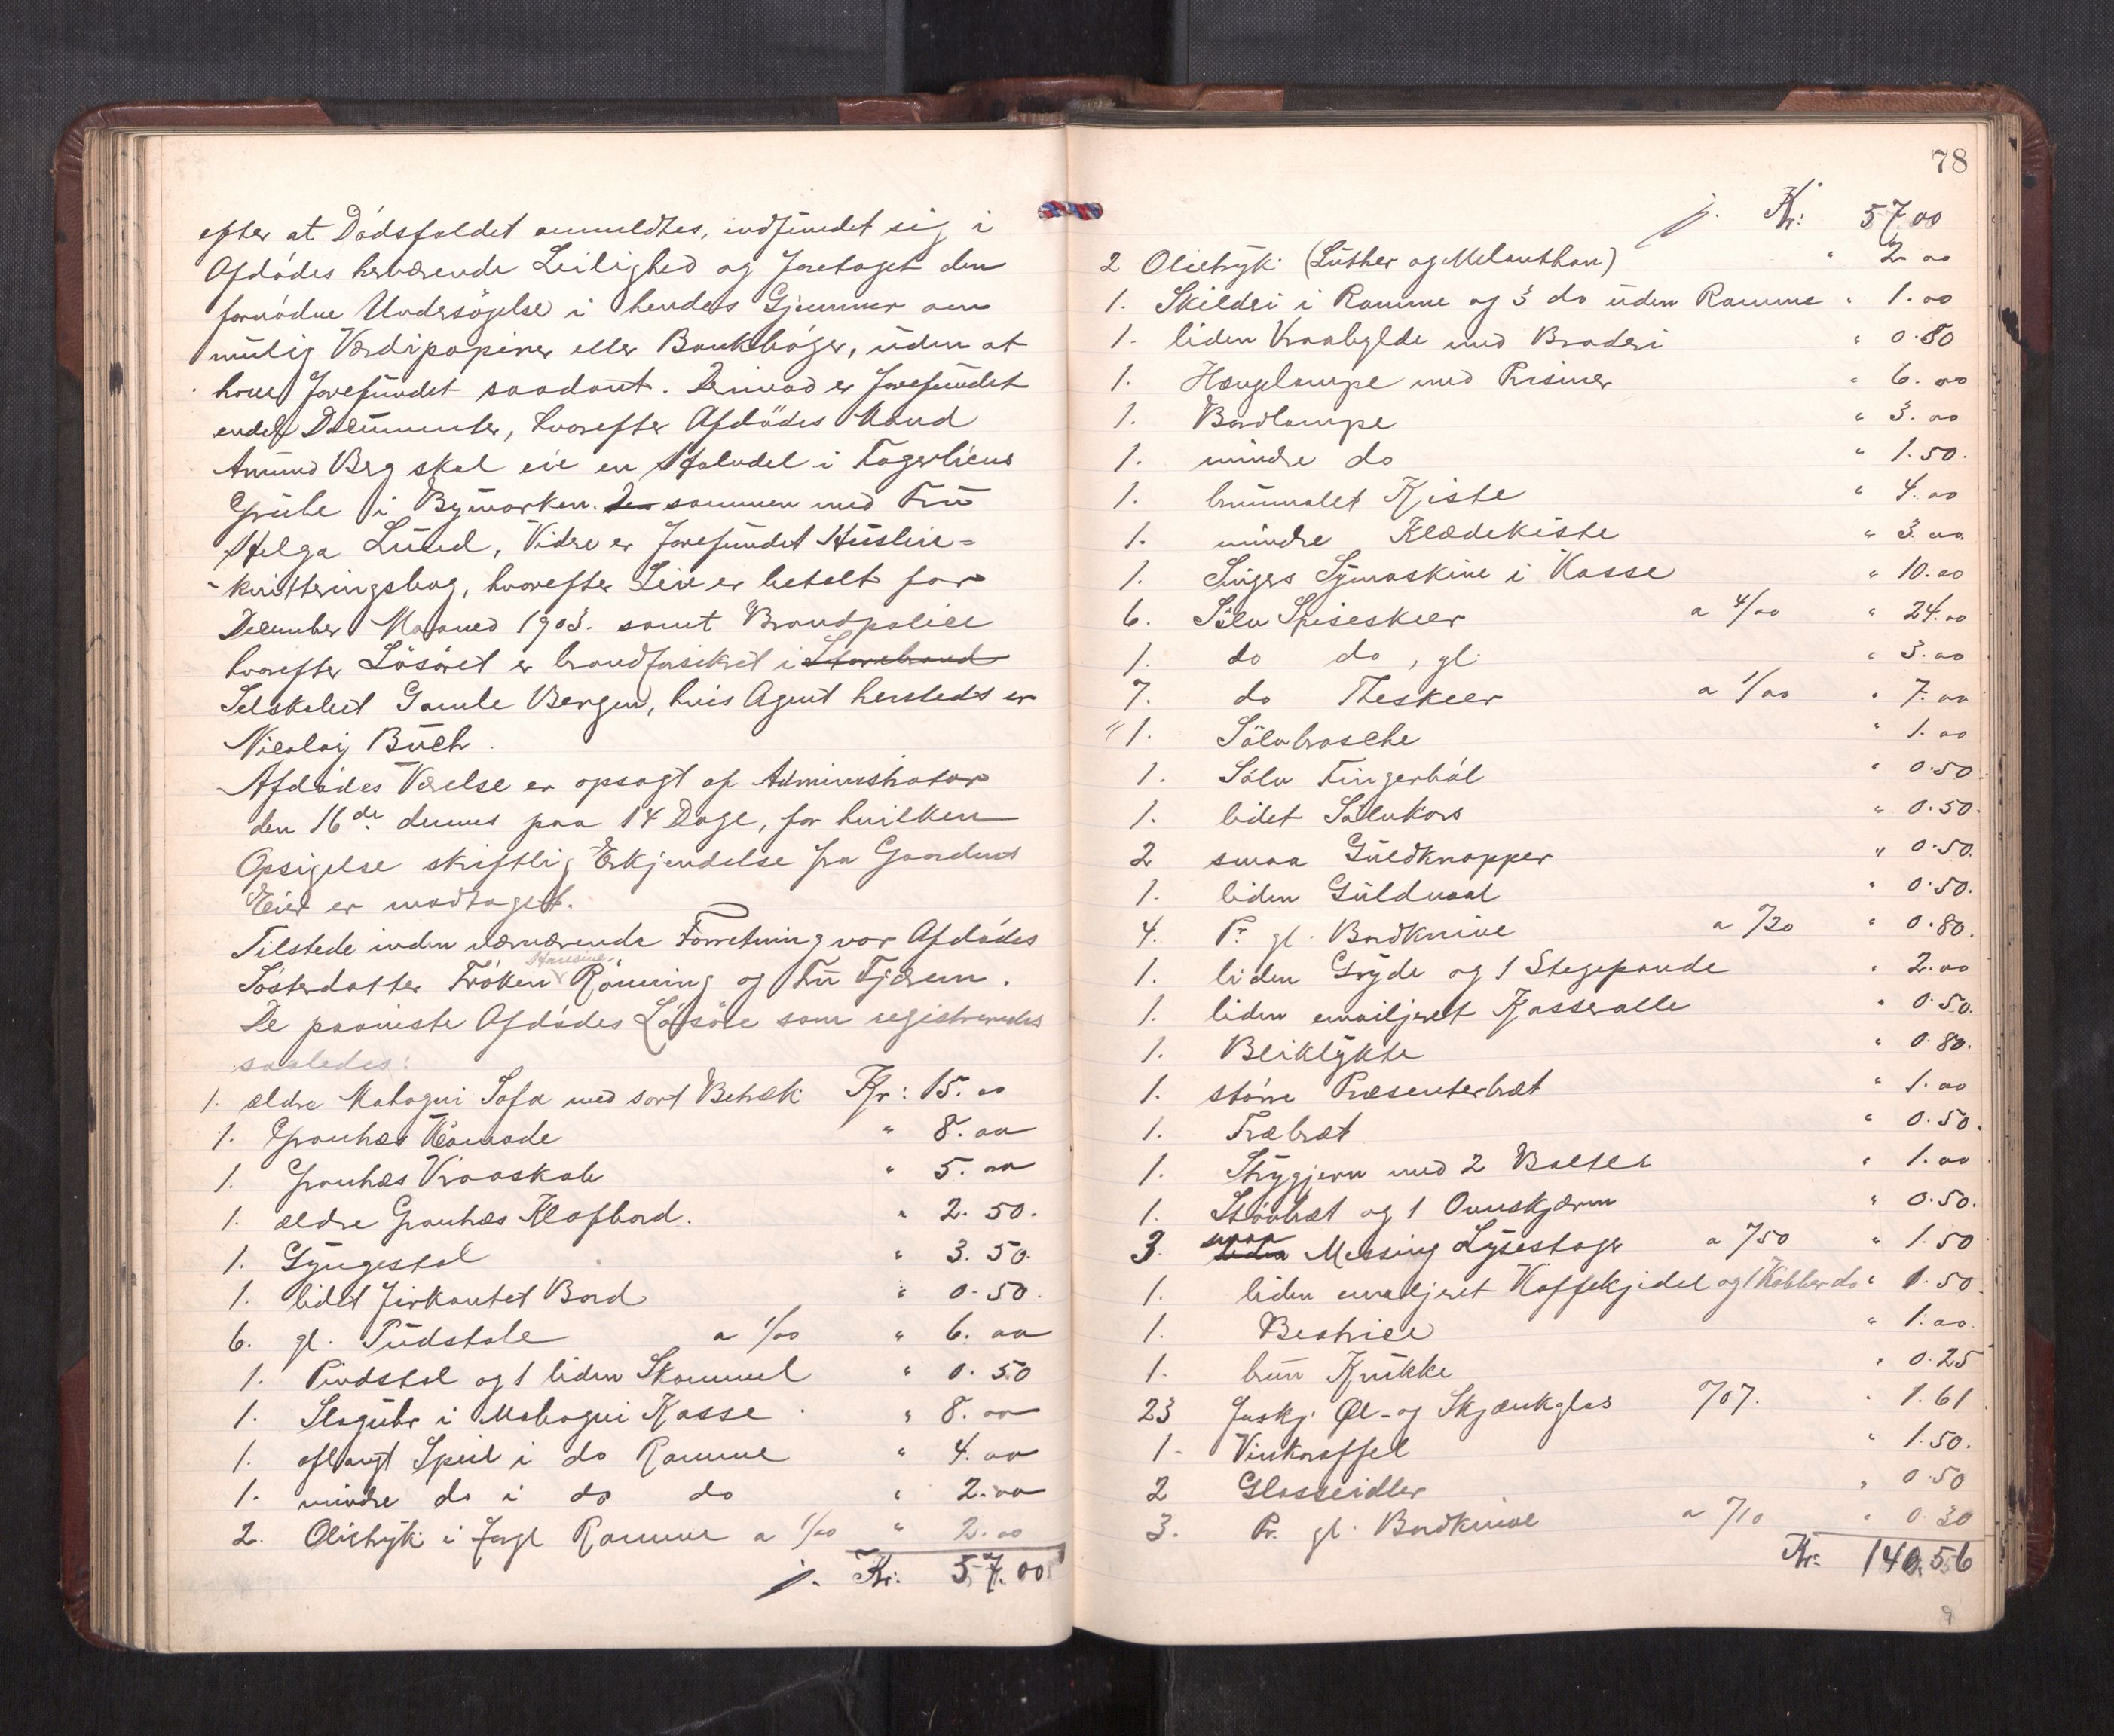 efter at Dödsfaldet anmeldtes, indfundet sig i
Afdödes herværende Leilighed og foretaget den
fornödne Undersögelse i hendes Gjemmer om
mulig Værdipapirer eller Bankböger, uden at
have forefundet saadant. Derimod er forefundet
endel Documenter, hvorefter Afdödes Mand
Amund Berg skal eie en Halvdel i Fagerliens
Grube i Bymarken. sammen med Frü
Helga Lund, Videre er forefundet Husleie-
-kvitteringsbog, hvorefter Leie er betalt for
December Maaned 1903. samt Brandpolice
hvorefter Lösöret er brandforsikret i Storebrand
Selskabet Gamle Bergen, hvis Agent hersteds er
Nicolaj Buch.
Afdödes Værelse er opsagt af Administrator
den 16de dennes paa 14 Dage, for hvilken
Opsigelse skriftlig Erkjendelse fra Gaardens
Eier er modtaget.
Tilstede inden nærværende Forretning var Afdödes
Hansine
Sösterdatter Fröken Rönning og Fru Fjærem.
De paaviste Afdödes Lösöre som registreredes
saaledes:
1. ældre Mahogni Sofa med sort Betræk Kr: 15.00
1. Granhæs Komode " 8.00
1. Granhæs Vraaskab " 5.00
1. ældre Granhæs Klafbord. " 2.50.
1. Gyngestol " 3.50.
1. lidet firkantet Bord " 0.50.
6. gl. Pudstole a 1/00 " 6.00
1. Pindstol og 1 liden Skammel " 0.50
1. Slaguhr i Mahogni Kasse " 8.00
1. aflangt Speil i do Ramme " 4.00
1. mindre do i do do " 2.00
2. Olietryk i forgl Ramme a 1/00 " 2.00
Kr: 57.00
78
Kr: 57,00
2 Olietryk (Luther og Melanthon) " 2.00
1. Skilderi i Ramme og 3 do uden Ramme " 1.00
1. liden Vraahylde med Broderi " 0.80
1. Hængelampe med Prismer " 6.00
1. Bordlampe " 3.00
1. mindre do " 1.50.
1. brunmalet Kiste " 4.00
1. mindre Klædekiste " 3.00
1. Singers Symaskine i Kasse " 10.00
6. Sölv Spiseskeer a 4/00 " 24.00
1. do do, gl. " 3.00
7. do Theskeer a 1/00 " 7.00
" 1. Sölvbrosche " 1.00
1. Sölv Fingerböl " 0.50
1. lidet Sölvkors " 0.50.
2 smaa Guldknapper " 0.50.
1. liden Guldnaal " 0.50.
4. Pr gl. Bordknive a "/20 " 0.80.
1. liden Gryde og 1 Stegepande " 2.00
1. liden emailjeret Kasserolle " 0.50.
1. Bliklykte " 0.80.
1. större Præsenterbræt " 1.00
1. Træbræt " 0.50.
1. Strygjern med 2 Bolter " 1.00
1. Stövbræt og 1 Ovnskjærm " 0.50.
smaa
3. liden Messing Lysestager a "/50 " 1.50
1. liden emaljeret Kaffekjedel og 1 Kobber do " 1.50.
1. Beatrice " 1.00.
1. brun Krukke " 0.25
23 forskj. Øl- og Skjænkglas "/07. " 1.61
1- Vinkaraffel " 1.50.
2 Glasseidler " 0.50
3. Pr. gl. Bordknive a "/10 " 0.30
Kr: 140.56
9